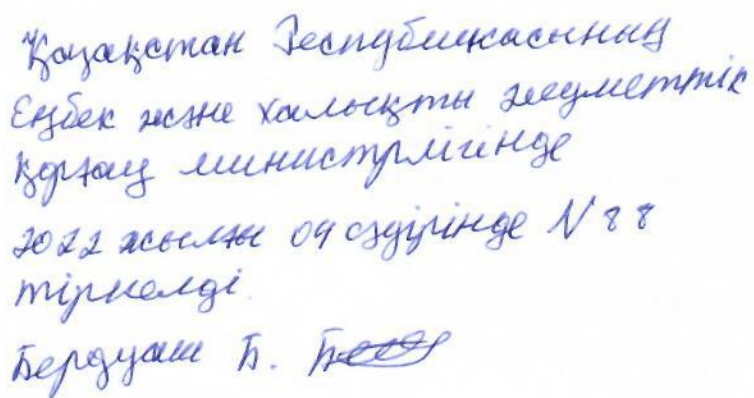 Қазақстан Республикасының
Еңбек және халықты әлеуметтік
қорғау министрлігінде
2022 жылғы 04 сәуірінде N 88
тіркелді
Бердуаш Б.